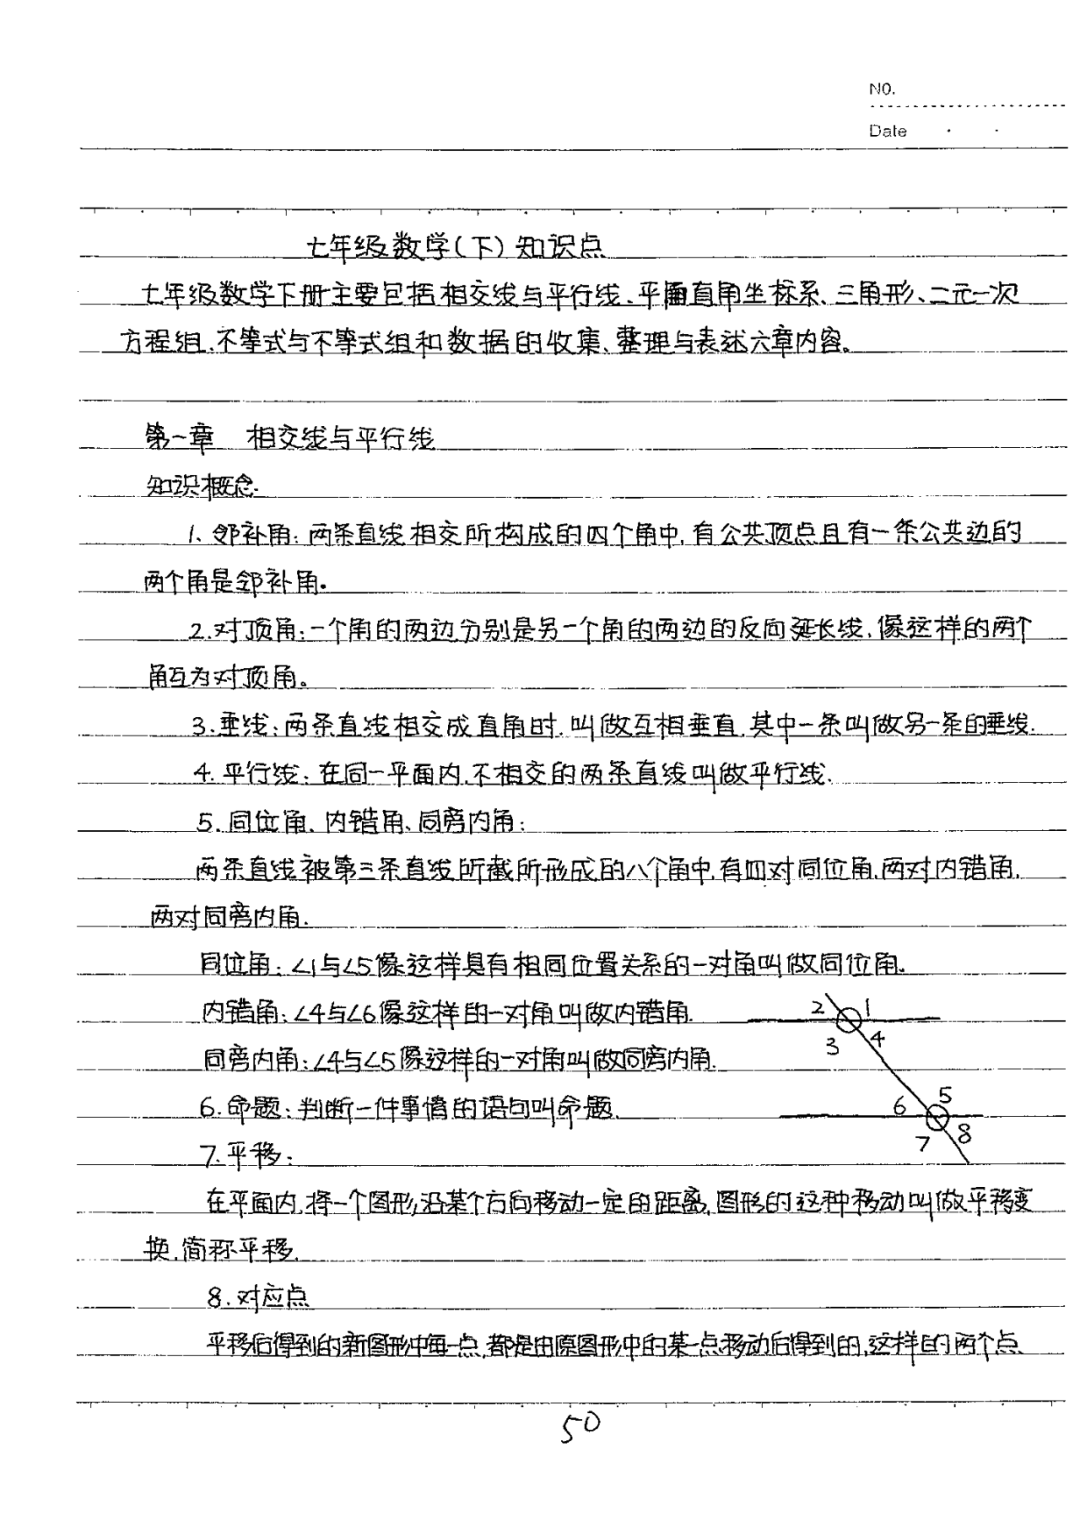 NO.
Date
七年级数学(下)知识点
七年级数学下册主要包括相交线与平行线、平面直角坐标系、三角形、二元一次
方程组、不等式与不等式组和数据的收集、整理与表述六章内容。
第一章 相交线与平行线
知识概念
1. 邻补角:两条直线相交所构成的四个角中,有公共顶点且有一条公共边的
两个角是邻补角.
2.对顶角:一个角的两边分别是另一个角的两边的反向延长线,像这样的两个
角互为对顶角。
3.垂线:两条直线相交成直角时,叫做互相垂直,其中一条叫做另一条的垂线.
4. 平行线:在同一平面内,不相交的两条直线叫做平行线.
5. 同位角、内错角、同旁内角:
两条直线被第三条直线所截所形成的八个角中,有四对同位角,两对内错角,
两对同旁内角.
同位角:∠1与∠5像这样具有相同位置关系的一对角叫做同位角.
内错角:∠4与∠6像这样的一对角叫做内错角.
同旁内角:∠4与∠5像这样的一对角叫做同旁内角.
6.命题:判断一件事情的语句叫命题.
7.平移:
2 1
3 4
6 5
7 8
在平面内,将一个图形沿某个方向移动一定的距离,图形的这种移动叫做平移变
换,简称平移.
8.对应点
平移后得到的新图形中每一点,都是由原图形中的某一点移动后得到的,这样的两个点
50